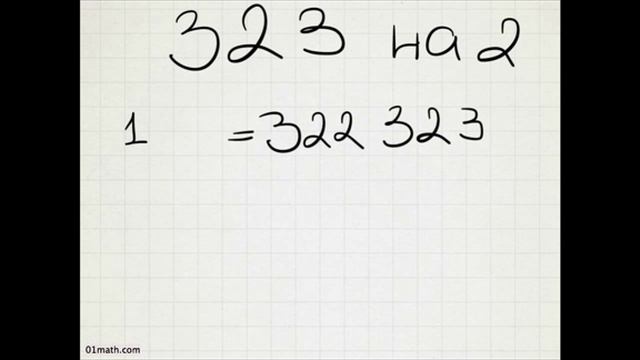 323 на 2
1 =322 323
01math.com